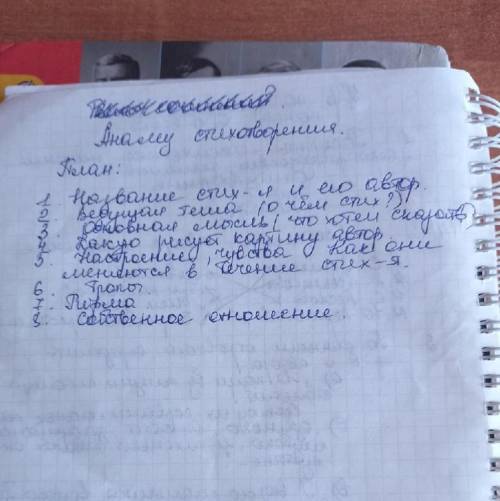 Анализ стихотворения.
План:
1. Название стих-я и его автор.
2. Ведущая тема (о чём стих?)
3. Основная мысль (что хотел сказать)
4. Какую рисует картину автор.
5. Настроение, чувства как они
меняются в течение стих-я.
6. Тропы
7. Рифма
8. Собственное отношение.